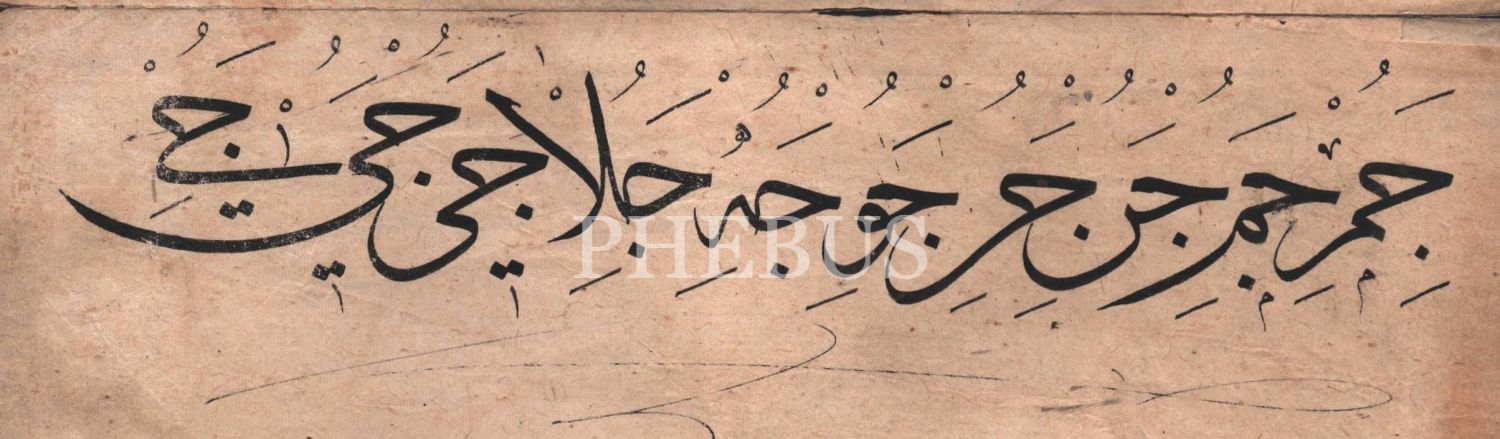 جم جم جن جن جو جه جلا جي جي جي
PHEBUS